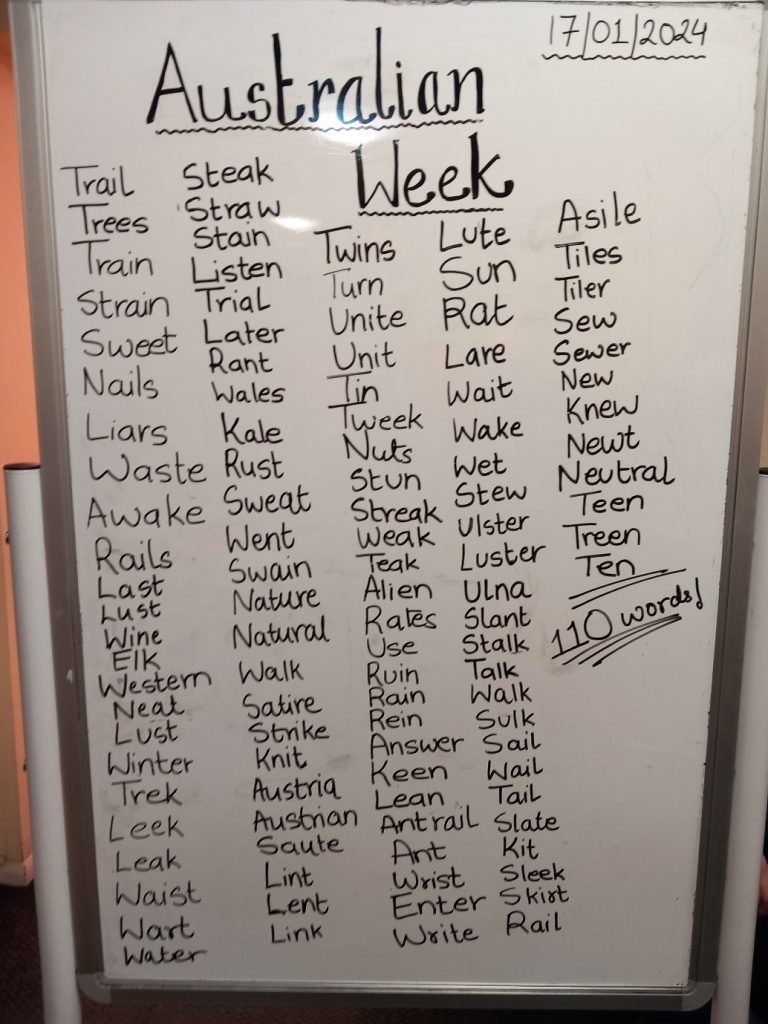 17/01/2024
Australian
Week
Trail
Trees
Train
Strain
Sweet
Nails
Liars
Waste
Awake
Rails
Last
Lust
Wine
Elk
Western
Neat
Lust
Winter
Trek
Leek
Leak
Waist
Wart
Water
Steak
Straw
Stain
Listen
Trial
Later
Rant
Wales
Kale
Rust
Sweat
Went
Swain
Nature
Natural
Walk
Satire
Strike
Knit
Austria
Austrian
Saute
Lint
Lent
Link
Twins
Turn
Unite
Unit
Tin
Tweek
Nuts
Stun
Streak
Weak
Teak
Alien
Rates
Use
Ruin
Rain
Rein
Answer
Keen
Lean
Antrail
Ant
Wrist
Enter
Write
Lute
Sun
Rat
Lare
Wait
Wake
Wet
Stew
Ulster
Luster
Ulna
Slant
Stalk
Talk
Walk
Sulk
Sail
Wail
Tail
Slate
Kit
Sleek
Skirt
Rail
Asile
Tiles
Tiler
Sew
Sewer
New
Knew
Newt
Neutral
Teen
Treen
Ten
110 words!